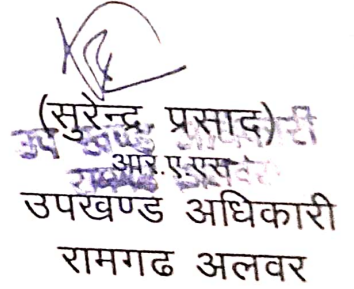 (सुरेन्द्र प्रसाद)
आर.ए.एस
उपखण्ड अधिकारी
रामगढ अलवर